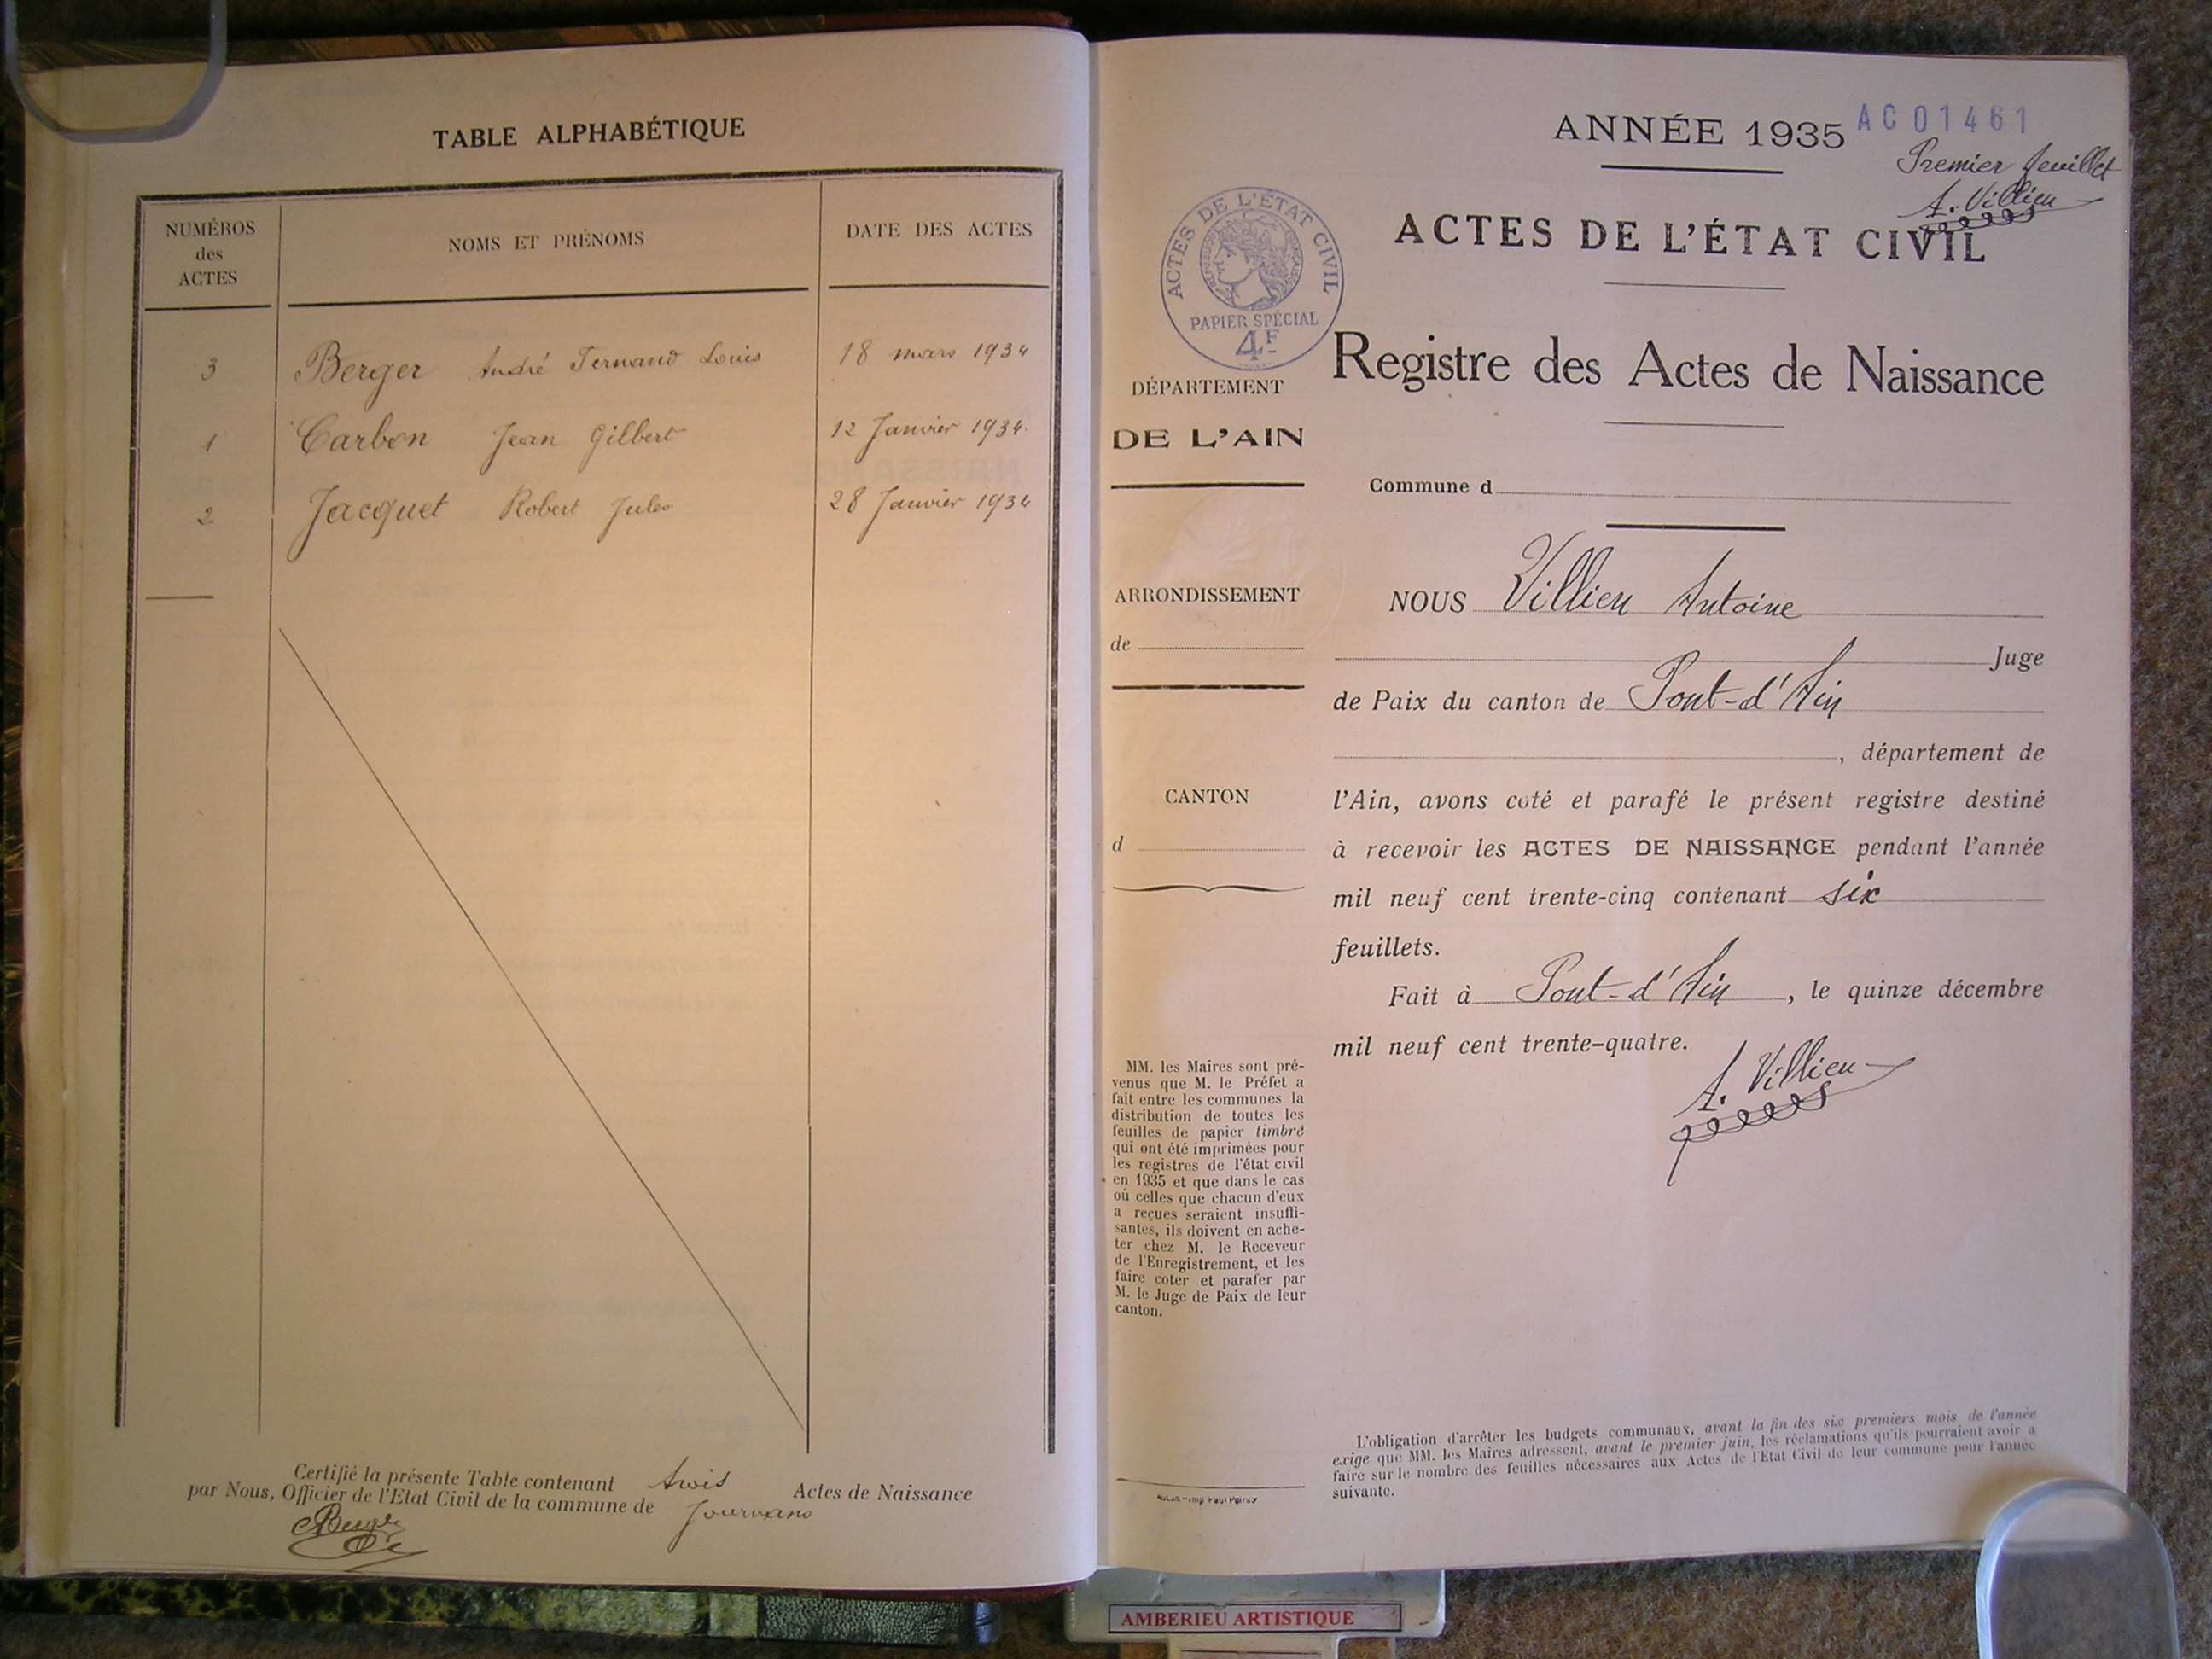 TABLE ALPHABÉTIQUE
NUMÉROS
des
ACTES
NOMS ET PRÉNOMS
DATE DES ACTES
3 Berger André Fernand Louis 18 mars 1934
1 Carbon Jean Gilbert 12 Janvier 1934.
2 Jacquet Robert Jules 28 Janvier 1934
Certifié la présente Table contenant trois Actes de Naissance
par Nous, Officier de l'Etat Civil de la commune de Journans
ANNÉE 1935
AC01461
Premier feuillet
A. Villieu
ACTES DE L'ÉTAT CIVIL
ACTES DE L'ÉTAT CIVIL
RÉPUBLIQUE FRANÇAISE
PAPIER SPÉCIAL
4F
Registre des Actes de Naissance
DÉPARTEMENT
DE L'AIN
Commune d
ARRONDISSEMENT
de
CANTON
d
NOUS Villieu Antoine
Juge
de Paix du canton de Pont-d'Ain
, département de
l'Ain, avons coté et parafé le présent registre destiné
à recevoir les ACTES DE NAISSANCE pendant l'année
mil neuf cent trente-cinq contenant six
feuillets.
Fait à Pont-d'Ain, le quinze décembre
mil neuf cent trente-quatre.
A. Villieu
MM. les Maires sont pré-
venus que M. le Préfet a
fait entre les communes la
distribution de toutes les
feuilles de papier timbré
qui ont été imprimées pour
les registres de l'état civil
en 1935 et que dans le cas
où celles que chacun d'eux
a reçues seraient insuffi-
santes, ils doivent en ache-
ter chez M. le Receveur
de l'Enregistrement, et les
faire coter et parafer par
M. le Juge de Paix de leur
canton.
L'obligation d'arrêter les budgets communaux, avant la fin des six premiers mois de l'année
exige que MM. les Maires adressent, avant le premier juin, les réclamations qu'ils pourraient avoir à
faire sur le nombre des feuilles nécessaires aux Actes de l'Etat Civil de leur commune pour l'année
suivante.
AMBERIEU ARTISTIQUE